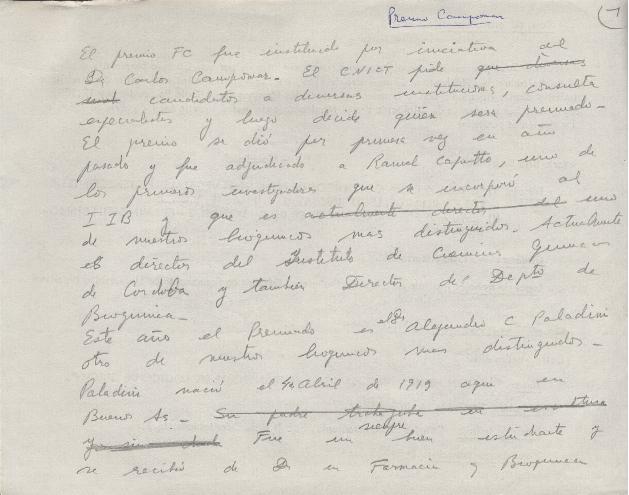 Premio Campomar
1
El premio FC fue instituido por iniciativa del
Dr Carlos Campomar. El CNICT pide que diversas
candidatos a diversas instituciones, consulta
especialistas y luego decide quien sera premiado.
El premio se dió por primera vez en año
pasado y fue adjudicado a Ranwel Caputto, uno de
los primeros investigadores que se incorporó al
IIB y que es actualmente director del uno
de nuestros bioquimicos mas distinguidos. Actualmente
es director del Instituto de Ciencias Quimicas
de Cordoba y también Director del Depto de
Bioquimica.
Este año el Premiado es el Dr Alejandro C Paladini
otro de nuestros bioquimicos mas distinguidos.
Paladini nació el 4 Abril de 1919 aqui en
Buenos As. Su padre trabajaba en
Fue siempre un buen estudiante y
se recibió de Dr en Farmacia y Bioquimica